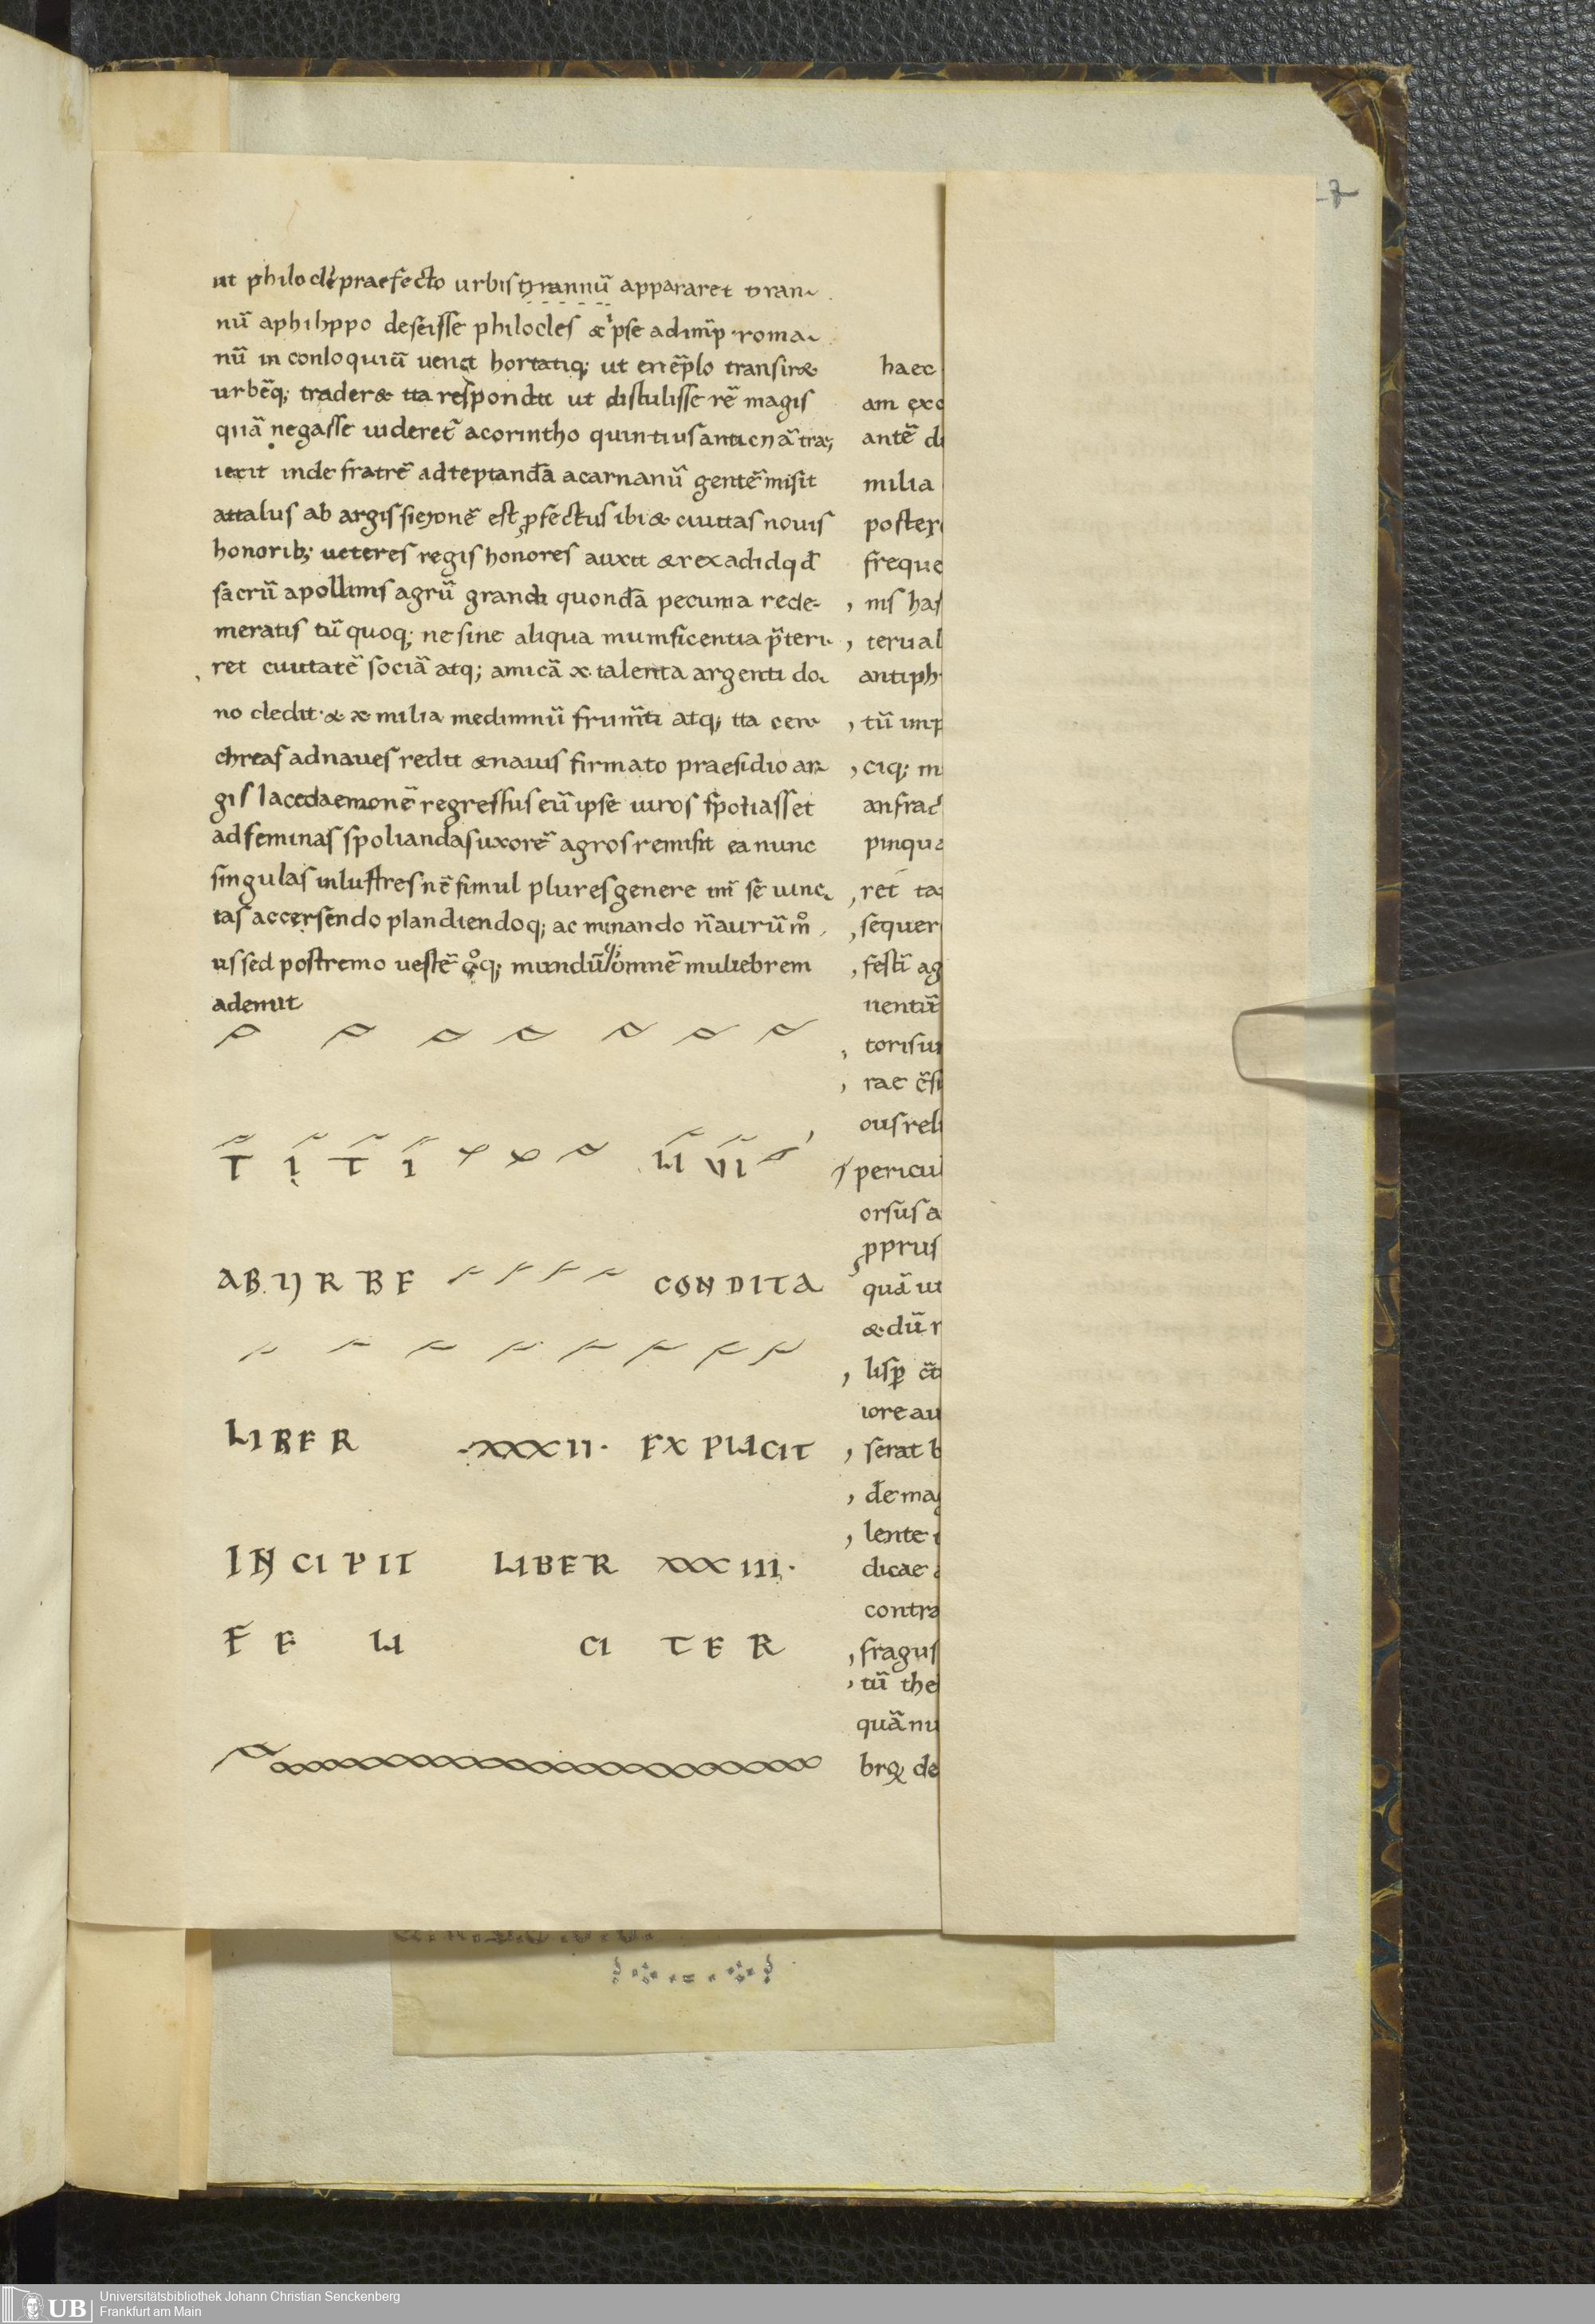 27
ut philocli praefecto urbis tyrannū appararet tyran-
nū a philippo descisse philocles & ipse ad imp̄ roma-
nū in conloquiū uenit hortatiq; ut exēplo transir&
urbēq; trader& ita respondit ut distulisse rē magis
quā negasse uideret̄ a corintho quintius anticyrā tra;
iecit inde fratrē ad teptandā acarnanū gentē misit
attalus ab argis sicyonē est ꝓfectus ibi & ciuitas nouis
honorib; ueteres regis honores auxit & rex ad id qd̄
sacrū apollinis agrū grandi quondā pecunia rede-
meratis tū quoq; ne sine aliqua munificentia p̄teri-
ret ciuitatē sociā atq; amicā x talenta argenti do-
no dedit & x milia medimnū frum̄ti atq; ita cen-
chreas ad naues redit & nauis firmato praesidio ar-
gis lacedaemonē regressus cū ipse uiros spoliasset
ad feminas spoliandas uxorē agros remisit ea nunc
singulas inlustres nc̄ simul plures genere int̄ se uinc-
tas accersendo plandiendoq; ac minando n̄ aurū m̊
us sed postremo uestē q̊q; mundū omnē muliebrem
ademit
TITI LIVI
AB URBE CONDITA
LIBER ·XXXII· EXPLICIT
INCIPIT LIBER XXXIII·
FELICITER
haec
am exc
antē d
milia
poster
freque
nis has
terual
antiph
tū imp
ciq; m
anfrac
pinqua
ret ta
sequer
festī ag
uentū
toris ui
rae ēsi
ous reli
pericul
orsus a
ꝓprius
quā ui
& dū r
lisꝑ ct̄
iore au
serat b
de mag
lente
dicae
contra
fragus
tū the
quā nu
brꝙ de
UB
Universitätsbibliothek Johann Christian Senckenberg
Frankfurt am Main